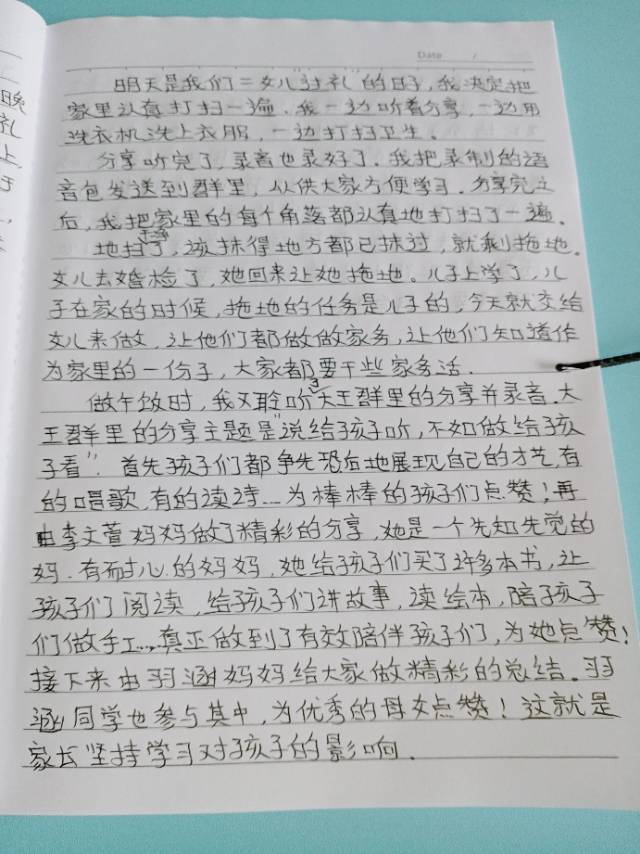 Date /
明天是我们二女儿过礼的日子,我决定把
家里认真打扫一遍.我一边听着分享,一边用
洗衣机洗上衣服,一边打扫卫生.
分享听完了,录音也录好了.我把录制的语
音包发送到群里,以供大家方便学习.分享完之
后,我把家里的每个角落都认真地打扫了一遍.
地扫干净了,该抹得地方都已抹过,就剩拖地。
女儿去婚检了,她回来让她拖地。儿子上学了,儿
子在家的时候,拖地的任务是儿子的,今天就交给
女儿来做,让他们都做做家务,让他们知道作
为家里的一份子,大家都要干些家务活.
做午饭时,我又聆听了大王群里的分享并录音.大
王群里的分享主题是"说给孩子听,不如做给孩
子看".首先孩子们都争先恐后地展现自己的才艺,有
的唱歌,有的读诗……为棒棒的孩子们点赞!再
由李文萱妈妈做了精彩的分享,她是一个先知先觉的
妈.有耐心的妈妈,她给孩子们买了许多本书,让
孩子们阅读,给孩子们讲故事,读绘本,陪孩子
们做手工……真正做到了有效陪伴孩子们,为她点赞!
接下来由羽涵妈妈给大家做精彩的总结。羽
涵同学也参与其中,为优秀的母女点赞!这就是
家长坚持学习对孩子的影响.
晚
礼
上
于